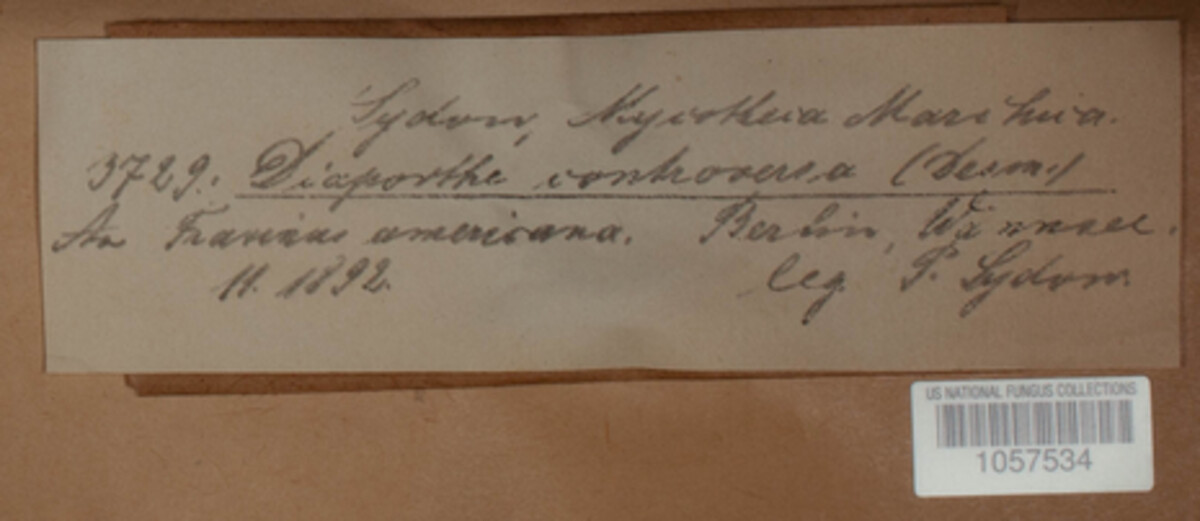 Sydow, Mycotheca Marchica.
3729. Diaporthe controversa (Desm.)
An Fraxinus americana. Berlin, Wannsee.
11. 1892. leg. P. Sydow.
US NATIONAL FUNGUS COLLECTIONS
1057534